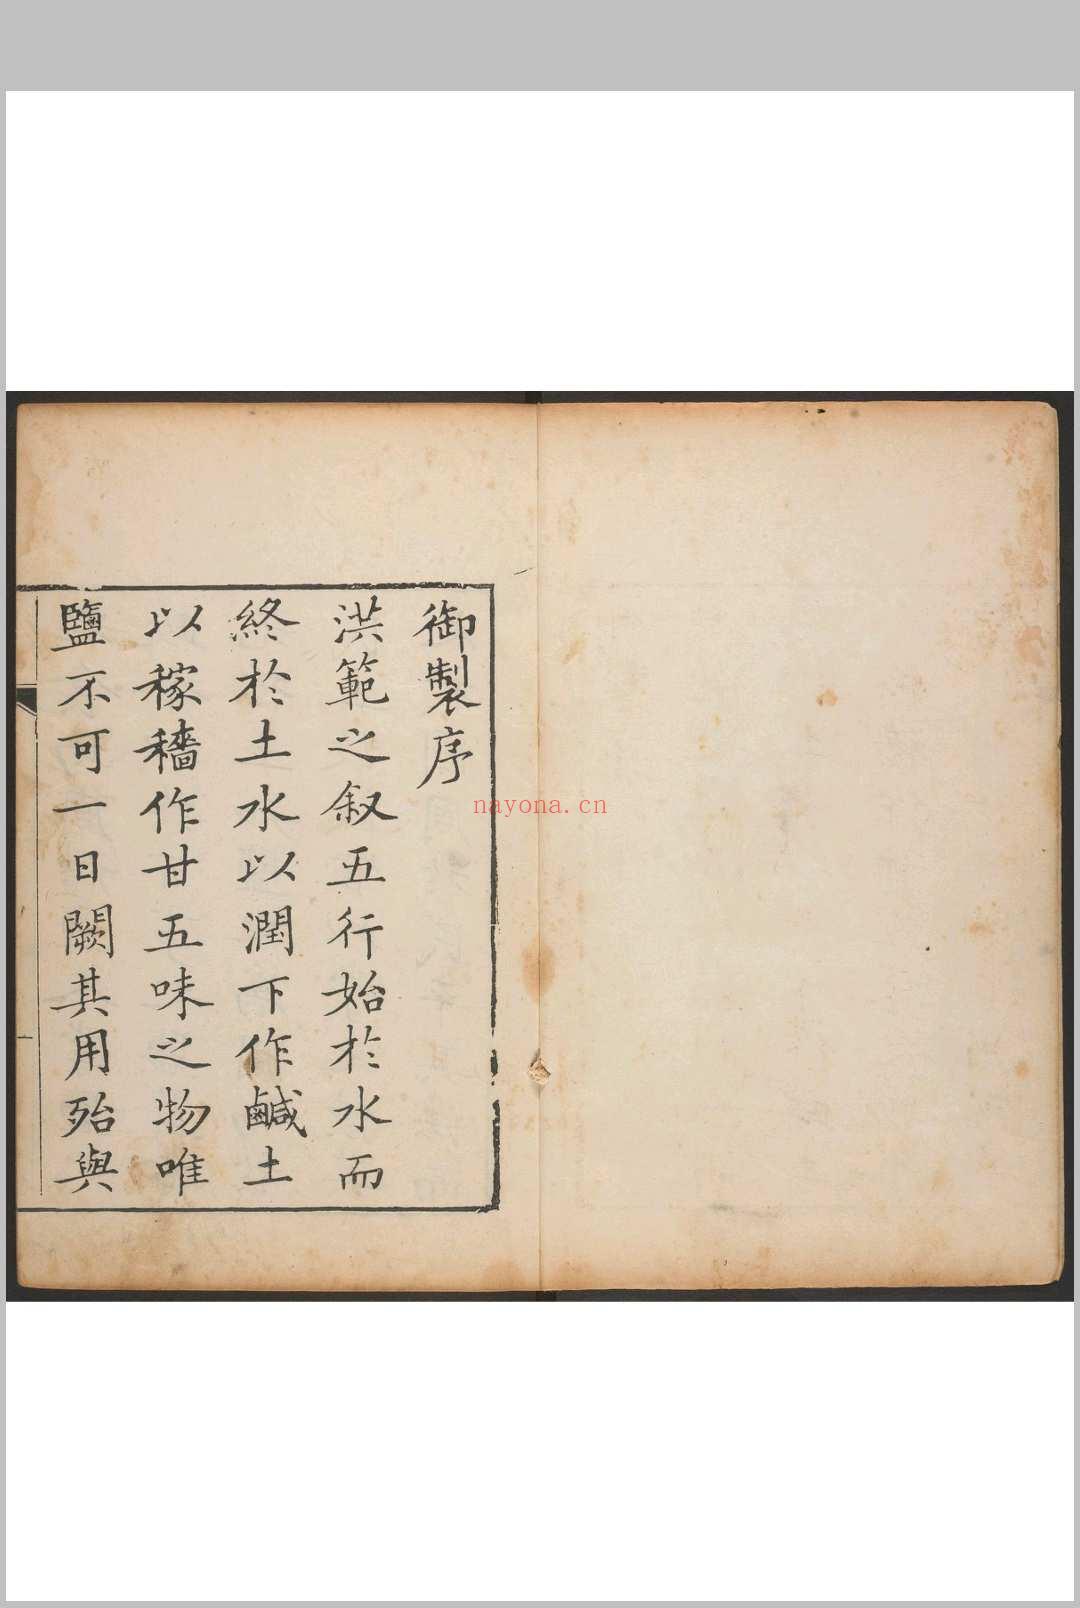 御製序
洪範之叙五行始於水而
終於土水以潤下作鹹土
以稼穡作甘五味之物唯
鹽不可一日闕其用殆與
nayona.cn